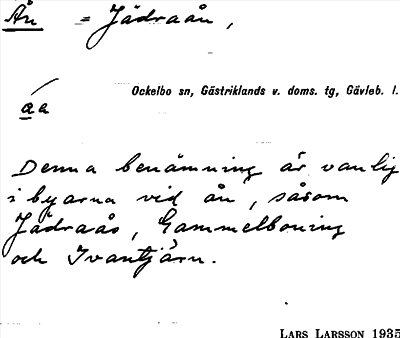 Ån = Jädraån,
Ockelbo sn, Gästriklands v. doms. tg, Gävleb. l.
a̱a
Denna benämning är vanlig
i byarna vid ån, såsom
Jädraås, Gammelboning
och Ivantjärn.
LARS LARSSON 1935